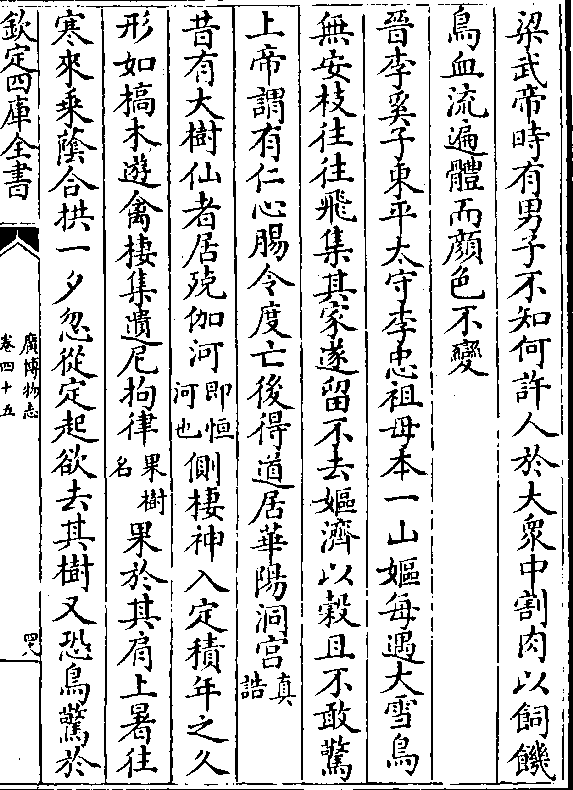 梁武帝時有男子不知何許人於大衆中割肉以飼饑
鳥血流遍體而顔色不變
晉李奚子東平太守李忠祖母本一山嫗每遇大雪鳥
無安枝往往飛集其家遂留不去嫗濟以穀且不敢驚
上帝謂有仁心賜令度亡後得道居華陽洞宮真誥
昔有大樹仙者居殑伽河即恒河也側棲神入定積年之久
形如槁木遊禽棲集遺尼拘律果樹名果於其肩上暑往
寒來乗蔭合拱一夕忽從定起欲去其樹又恐鳥驚於
欽定四庫全書
廣博物志
卷四十五